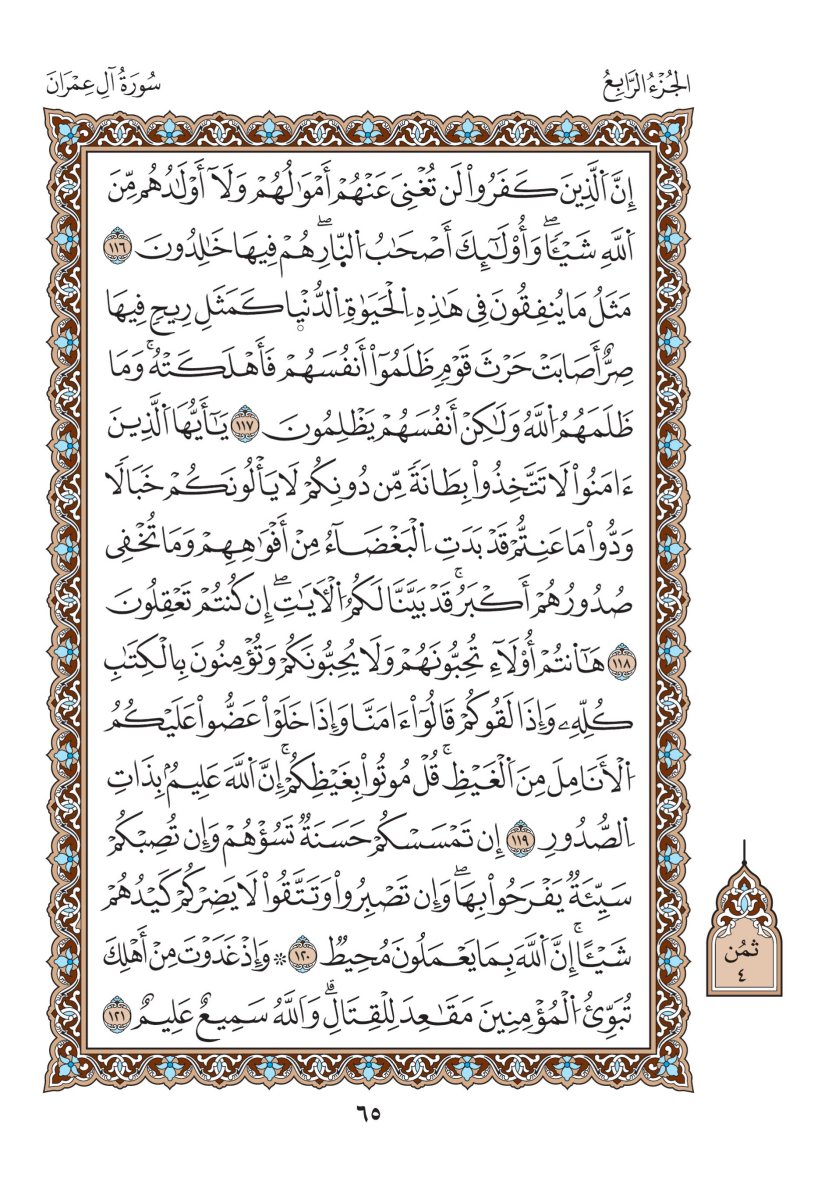 الجُزْءُ الرَّابِعُ
سُورَةُ آلِ عِمْرَانَ
إِنَّ اَ۬لَّذِينَ كَفَرُواْ لَن تُغْنِيَ عَنْهُمْ أَمْوَٰلُهُمْ وَلَآ أَوْلَٰدُهُم مِّنَ
اَ۬للَّهِ شَيْـًٔاۖ وَأُوْلَٰٓئِكَ أَصْحَٰبُ اُ۬لنّ۪ارِۖ هُمْ فِيهَا خَٰلِدُونَ ١١٦
مَثَلُ مَا يُنفِقُونَ فِي هَٰذِهِ اِ۬لْحَيَوٰةِ اِ۬لدُّنْي۪ا كَمَثَلِ رِيحٖ فِيهَا
صِرٌّ أَصَابَتْ حَرْثَ قَوْمٖ ظَلَمُوٓاْ أَنفُسَهُمْ فَأَهْلَكَتْهُۚ وَمَا
ظَلَمَهُمُ اُ۬للَّهُ وَلَٰكِنْ أَنفُسَهُمْ يَظْلِمُونَ ١١٧ يَٰٓأَيُّهَا اَ۬لَّذِينَ
ءَامَنُواْ لَا تَتَّخِذُواْ بِطَانَةٗ مِّن دُونِكُمْ لَا يَأْلُونَكُمْ خَبَالٗا
وَدُّواْ مَا عَنِتُّمْ قَدْ بَدَتِ اِ۬لْبَغْضَآءُ مِنْ أَفْوَٰهِهِمْ وَمَا تُخْفِي
صُدُورُهُمْ أَكْبَرُۚ قَدْ بَيَّنَّا لَكُمُ اُ۬لْأٓيَٰتِۖ إِن كُنتُمْ تَعْقِلُونَ
١١٨ هَآانتُمْ أُوْلَآءِ تُحِبُّونَهُمْ وَلَا يُحِبُّونَكُمْ وَتُؤْمِنُونَ بِالْكِتَٰبِ
كُلِّهِۦ وَإِذَا لَقُوكُمْ قَالُوٓاْ ءَامَنَّا وَإِذَا خَلَوْاْ عَضُّواْ عَلَيْكُمُ
اُ۬لْأَنَامِلَ مِنَ اَ۬لْغَيْظِۚ قُلْ مُوتُواْ بِغَيْظِكُمْۚ إِنَّ اَ۬للَّهَ عَلِيمُۢ بِذَاتِ
اِ۬لصُّدُورِ ١١٩ إِن تَمْسَسْكُمْ حَسَنَةٞ تَسُؤْهُمْ وَإِن تُصِبْكُمْ
سَيِّئَةٞ يَفْرَحُواْ بِهَاۖ وَإِن تَصْبِرُواْ وَتَتَّقُواْ لَا يَضِرْكُمْ كَيْدُهُمْ
شَيْـًٔاۚ إِنَّ اَ۬للَّهَ بِمَا يَعْمَلُونَ مُحِيطٞ ١٢٠ ۞ وَإِذْ غَدَوْتَ مِنْ أَهْلِكَ
تُبَوِّئُ اُ۬لْمُؤْمِنِينَ مَقَٰعِدَ لِلْقِتَالِۗ وَاَ۬للَّهُ سَمِيعٌ عَلِيمٌ ١٢١
ثُمُن
٤
٦٥